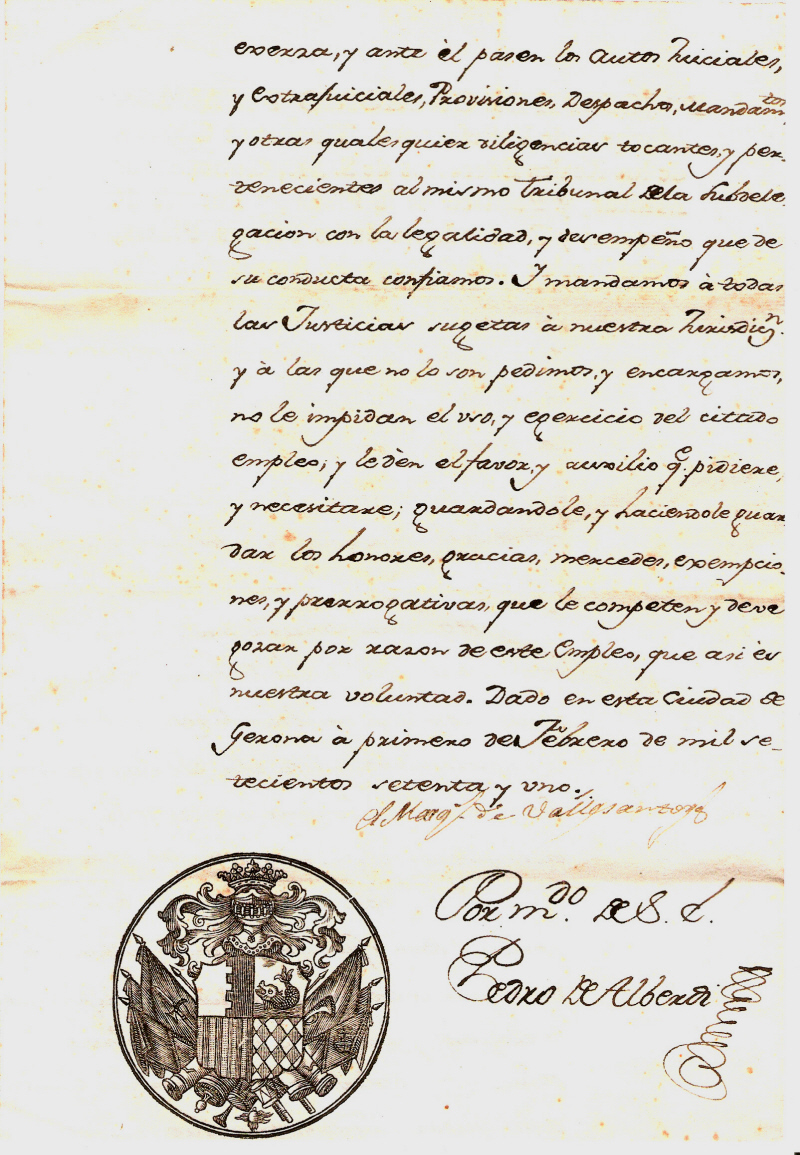 exerza, y ante èl pasen los Autos Juiciales,
y Extrajuiciales, Provisiones, Despachos, Mandamtos
y otras quales quier diligencias tocantes, y per-
tenecientes al mismo Tribunal de la Subdele-
gacion con la legalidad, y desempeño que de
su conducta confiamos. Y mandamos à todas
las Justicias sugetas à nuestra Jurisdicn.
y à las que no lo son pedimos, y encargamos,
no le impidan el uso, y egercicio del citado
empleo; y le dèn el favor, y auxilio qe. pidiere,
y necesitare; guardandole, y haciendole guar-
dar los honores, gracias, mercedes, exempcio-
nes, y prerrogativas, que le competen y deve
gozar por razon de este Empleo, que asi ès
nuestra voluntad. Dado en esta Ciudad de
Gerona à primero de Febrero de mil se-
tecientos setenta y uno.
el Marqs. de Vallesantoro
Por mdo. de S. E.
Pedro de Alberdi